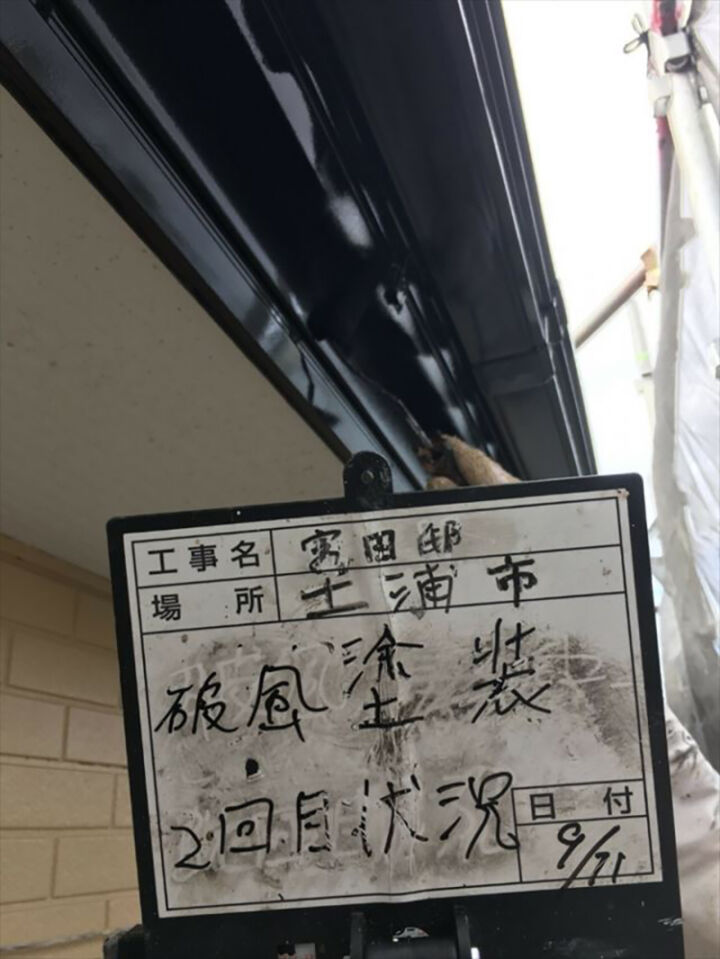 工事名 富田邸
場所 土浦市
破風塗装
2回目状況
日付
9/11